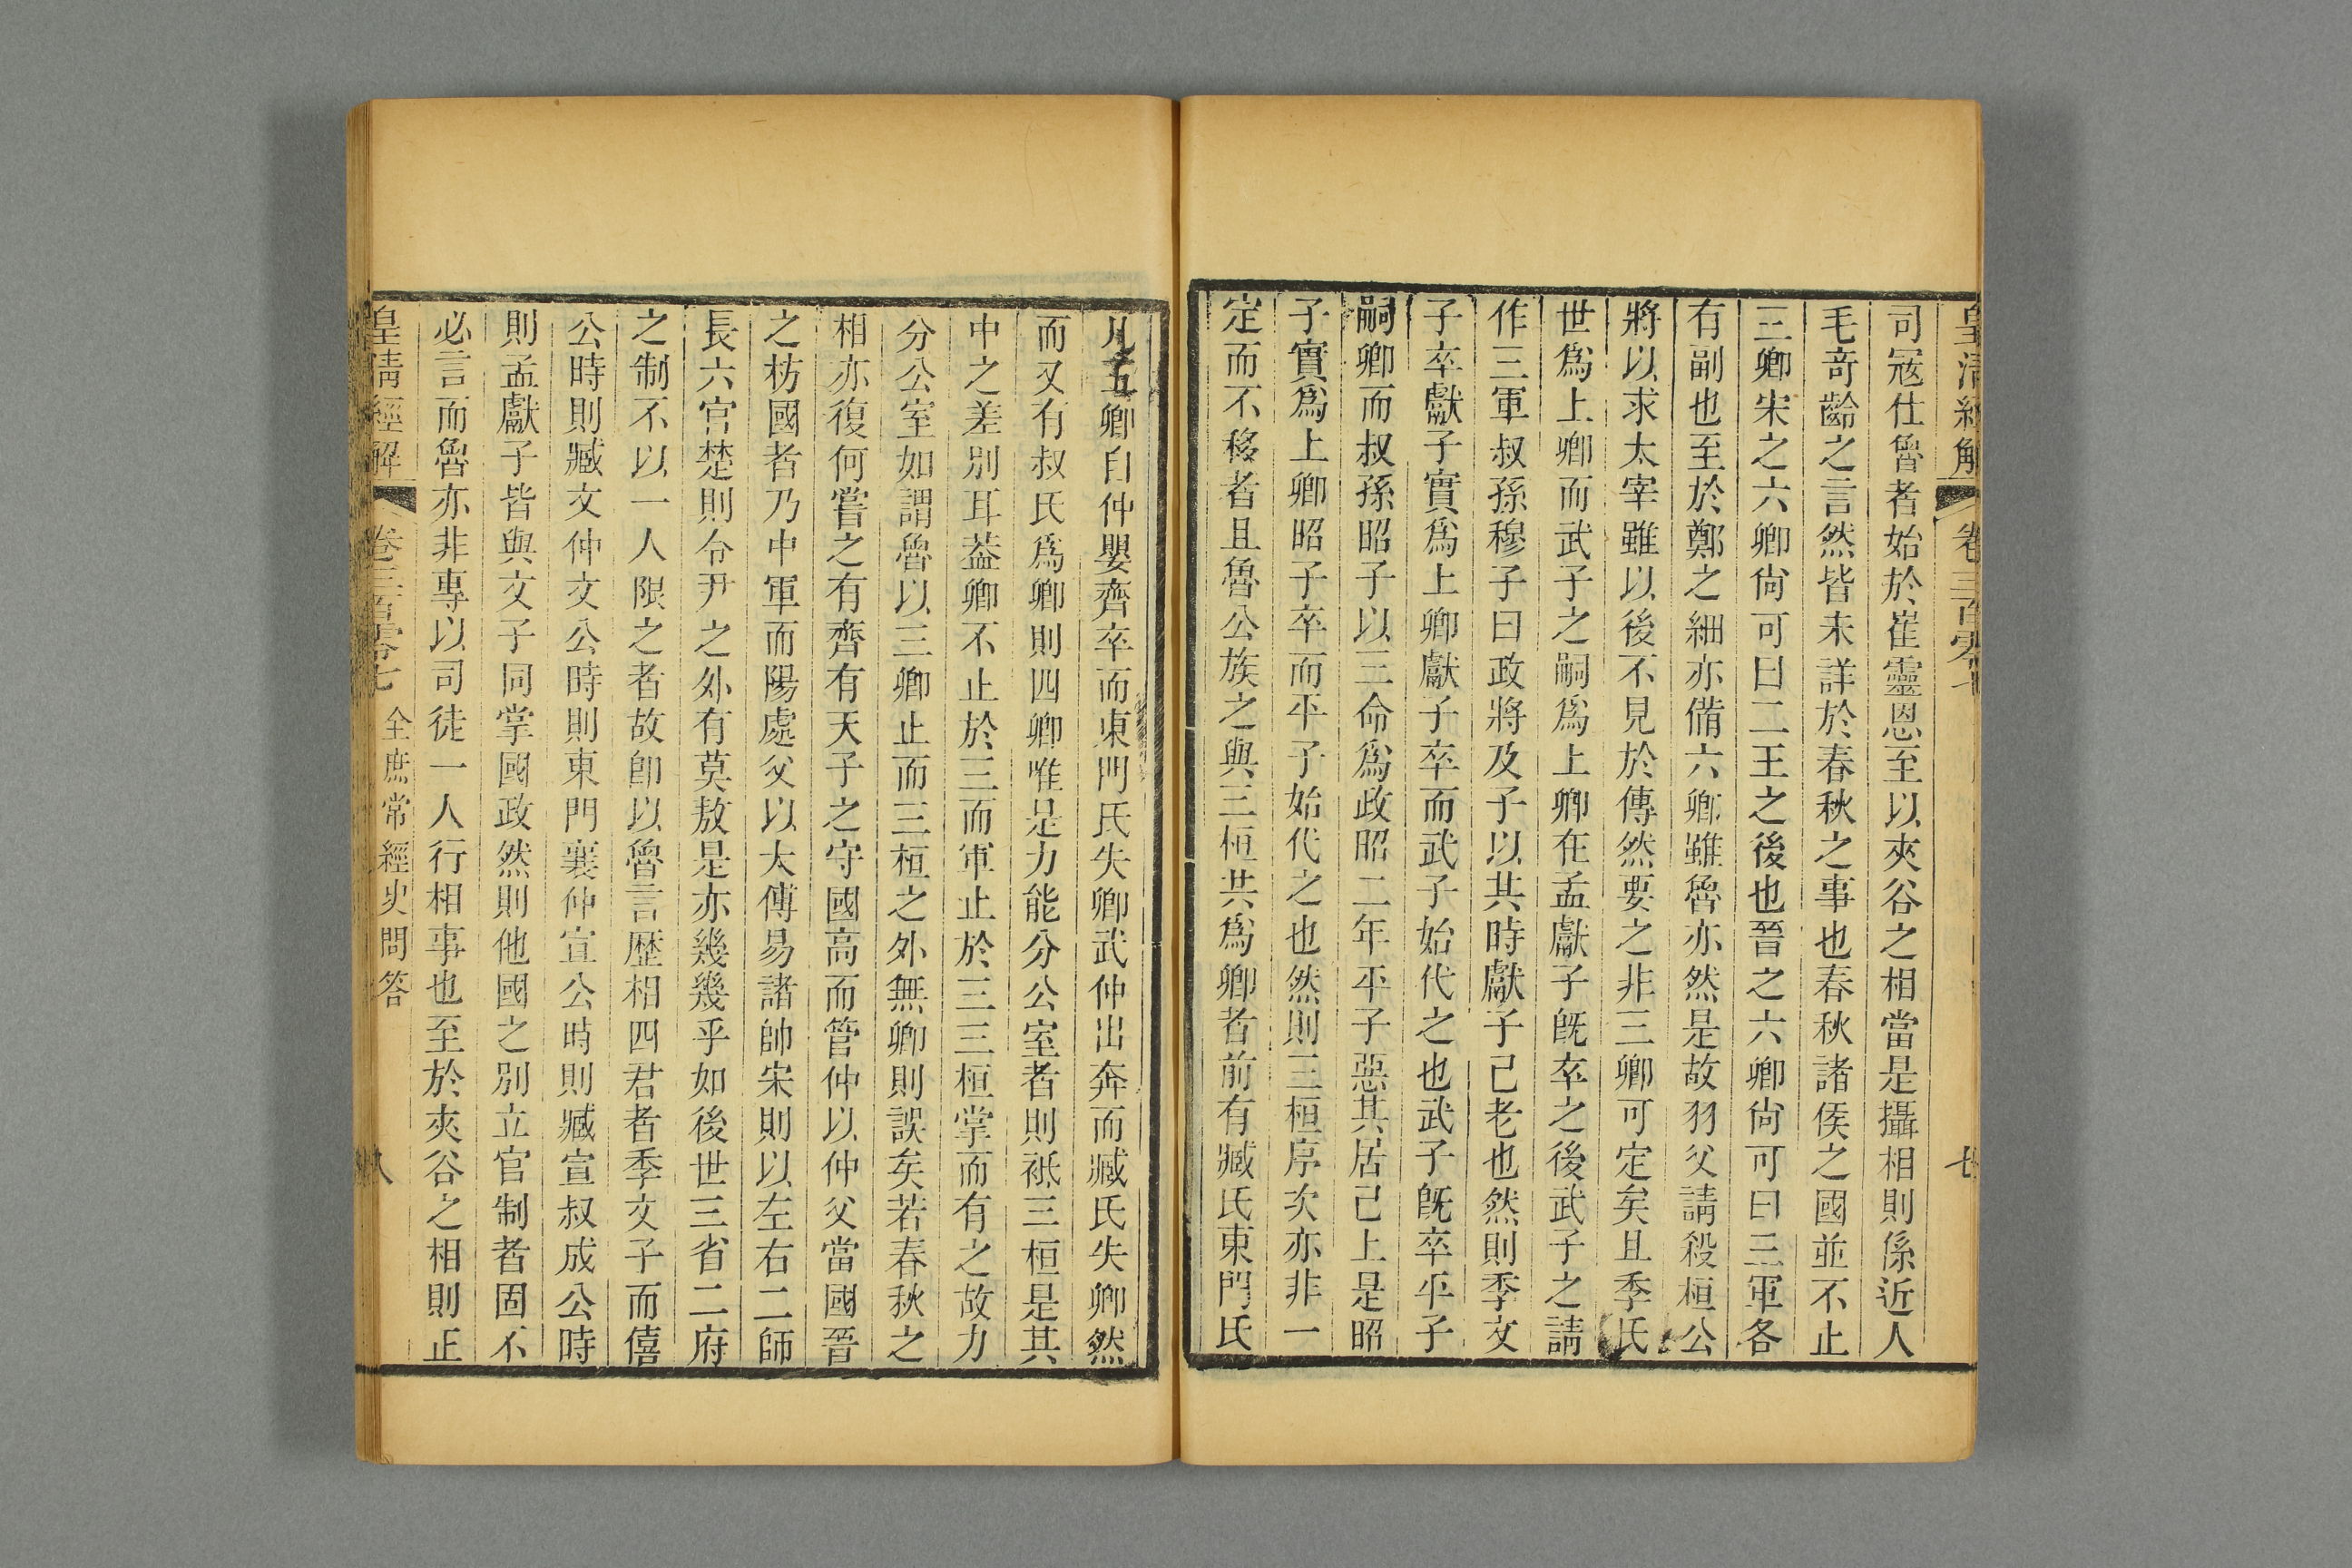 皇清經解 卷三百零七 七
司寇仕魯者始於崔靈恩至以夾谷之相當是攝相則係近人
毛奇齡之言然皆未詳於春秋之事也春秋諸侯之國並不止
三卿宋之六卿尚可曰二王之後也晉之六卿尚可曰三軍各
有副也至於鄭之細亦備六卿雖魯亦然是故羽父請殺桓公
將以求太宰雖以後不見於傳然要之非三卿可定矣且季氏
世爲上卿而武子之嗣爲上卿在孟獻子旣卒之後武子之請
作三軍叔孫穆子曰政將及子以其時獻子己老也然則季文
子卒獻子實爲上卿獻子卒而武子始代之也武子旣卒平子
嗣卿而叔孫昭子以三命爲政昭二年平子惡其居己上是昭
子實爲上卿昭子卒而平子始代之也然則三桓序次亦非一
定而不移者且魯公族之與三桓共爲卿者前有臧氏東門氏
凡五卿自仲嬰齊卒而東門氏失卿武仲出奔而臧氏失卿然
而又有叔氏爲卿則四卿唯是力能分公室者則祗三桓是其
中之差別耳葢卿不止於三而軍止於三三桓掌而有之故力
分公室如謂魯以三卿止而三桓之外無卿則誤矣若春秋之
相亦復何嘗之有齊有天子之守國高而管仲以仲父當國晉
之枋國者乃中軍而陽處父以太傅易諸帥宋則以左右二師
長六官楚則令尹之外有莫敖是亦幾幾乎如後世三省二府
之制不以一人限之者故卽以魯言歷相四君者季文子而僖
公時則臧文仲文公時則東門襄仲宣公時則臧宣叔成公時
則孟獻子皆與文子同掌國政然則他國之別立官制者固不
必言而魯亦非專以司徒一人行相事也至於夾谷之相則正
皇清經解 卷三百零七 全庶常經史問答 八